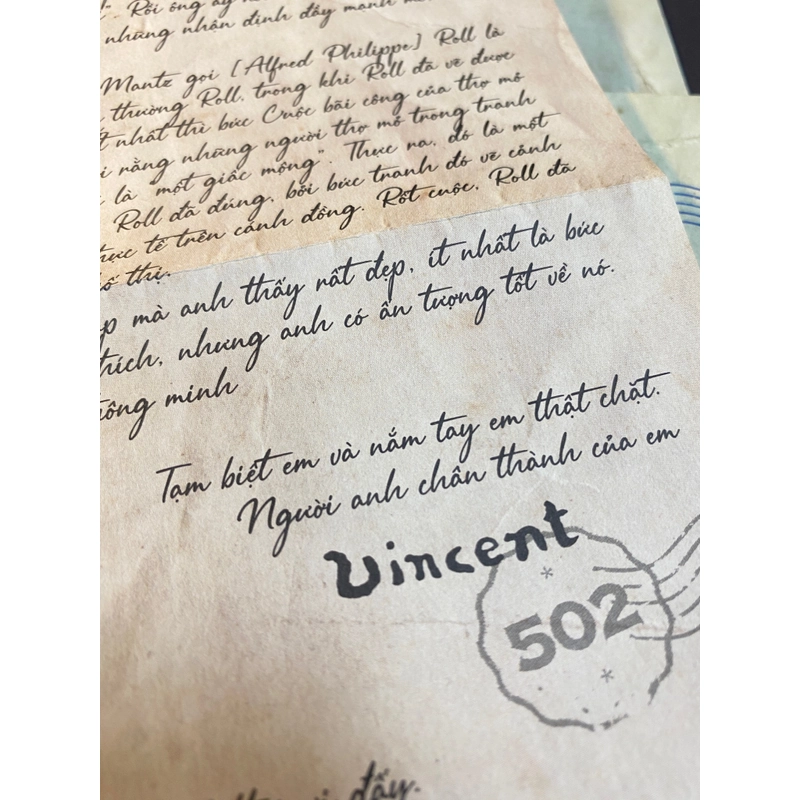 Rồi ông ấy
những nhân định đầy mạnh
Mantz gọi [Alfred Philippe] Roll là
thường Roll, trong khi Roll đã vẽ được
nhất thì bức Cuộc bãi công của thợ mỏ
rằng những người thợ mỏ trong tranh
là "một giấc mộng". Thực ra, đó là một
Roll đã đúng, bởi bức tranh đó vẽ cảnh
thực tế trên cánh đồng. Rốt cuộc, Roll đã
thị.
mà anh thấy rất đẹp, ít nhất là bức
thích, nhưng anh có ấn tượng tốt về nó.
minh
Tạm biệt em và nắm tay em thật chặt.
Người anh chân thành của em
Vincent
502
đấy.